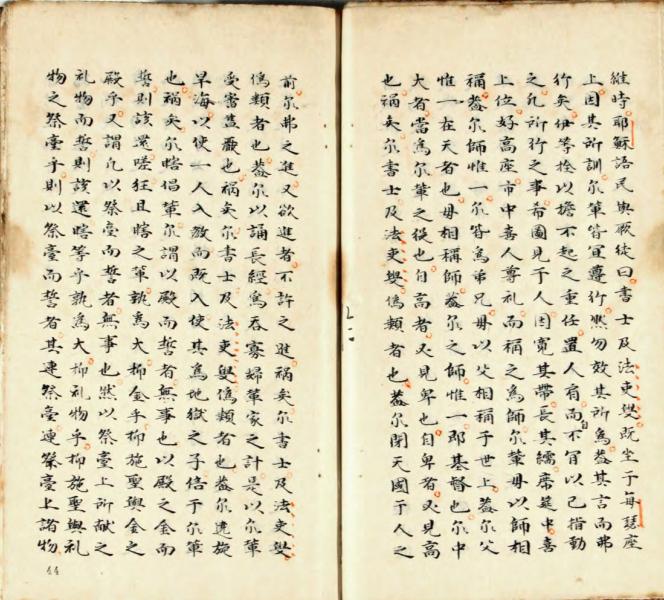 維時耶穌語民與厥徒曰書士及法吏叟既坐于每瑟座
上因其所訓尔輩皆宜遵行然勿效其所為蓋其言而弗
行矣伊等拴以擔不起之重任置人肩而自不肎以己指動
之凡所行之事希圖見于人因寬其帶長其繻席筵中喜
上位好高座市中喜人尊礼而稱之為師尔輩毋以師相
稱蓋尔師惟一尔皆為弟兄毋以父相稱于世上蓋尔父
惟一在天者也毋相稱師蓋尔之師惟一即基督也尔中
大者當為尔輩之役也自高者必見卑也自卑者必見高
也禍矣尔書士及法吏叟偽類者也蓋尔閉天國于人之
前尔弗之進又欲進者不許之進禍矣尔書士及法吏叟
偽類者也蓋尔以誦長經為吞寡婦輩家之計是以尔輩
受審益嚴也禍矣尔書士及法吏叟偽類者也蓋尔遶旋
旱海以使一人入教而既入使其為地獄之子倍于尔輩
也禍矣尔瞎倡輩尔謂以殿而誓者無事也以殿之金而
誓則該還嗟狂且瞎之輩孰為大抑金乎抑施聖與金之
殿乎又謂凡以祭臺而誓者無事也然以祭臺上所献之
礼物而誓則該還瞎等乎孰為大抑礼物乎抑施聖與礼
物之祭臺乎則以祭臺而誓者其連祭臺連祭臺上諸物
44